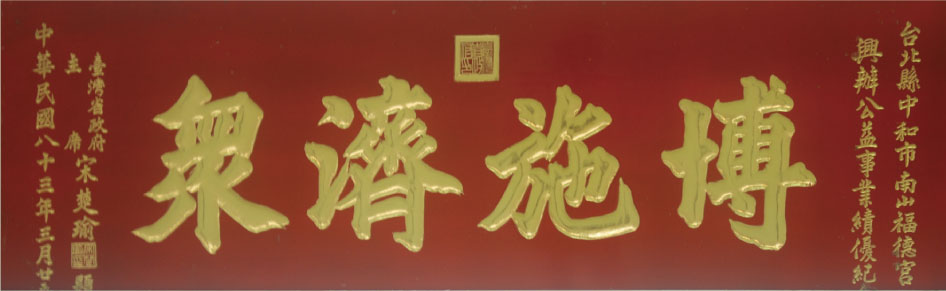 台北縣中和市南山福德宮
興辦公益事業績優紀
博施濟眾
臺灣省政府
主席宋楚瑜
中華民國八十三年三月廿